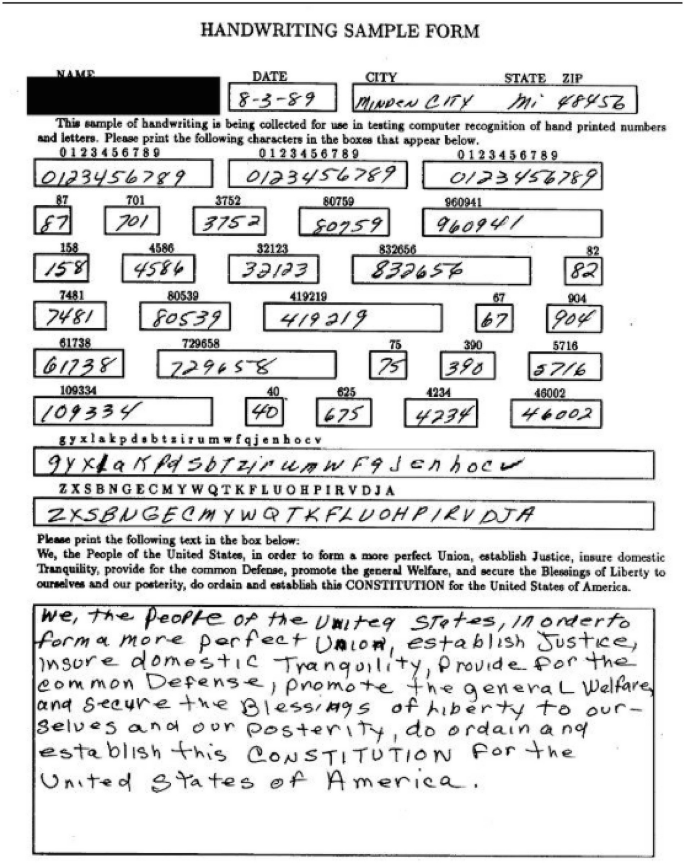 HANDWRITING SAMPLE FORM
NAME DATE CITY STATE ZIP
8-3-89 MINDEN CITY Mi 48456
This sample of handwriting is being collected for use in testing computer recognition of hand printed numbers
and letters. Please print the following characters in the boxes that appear below.
0 1 2 3 4 5 6 7 8 9 0 1 2 3 4 5 6 7 8 9 0 1 2 3 4 5 6 7 8 9
0123456789 0123456789 0123456789
87 701 3752 80759 960941
87 701 3752 80759 960941
158 4586 32123 832656 82
158 4586 32123 832656 82
7481 80539 419219 67 904
7481 80539 419219 67 904
61738 729658 75 390 5716
61738 729658 75 390 5716
109334 40 625 4234 46002
109334 40 675 4234 46002
g y x l a k p d s b t z i r u m w f q j e n h o c v
gyxlaKpdsbTzirumwFqJenhocv
Z X S B N G E C M Y W Q T K F L U O H P I R V D J A
ZXSBNGECMYWQTKFLUOHPIRVDJA
Please print the following text in the box below:
We, the People of the United States, in order to form a more perfect Union, establish Justice, insure domestic
Tranquility, provide for the common Defense, promote the general Welfare, and secure the Blessings of Liberty to
ourselves and our posterity, do ordain and establish this CONSTITUTION for the United States of America.
We, the People of the United States, in order to
form a more perfect Union, establish Justice,
insure domestic Tranquility, Provide for the
common Defense, promote the general Welfare,
and secure the Blessings of Liberty to our-
selves and our posterity, do ordain and
establish this CONSTITUTION for the
United States of America.